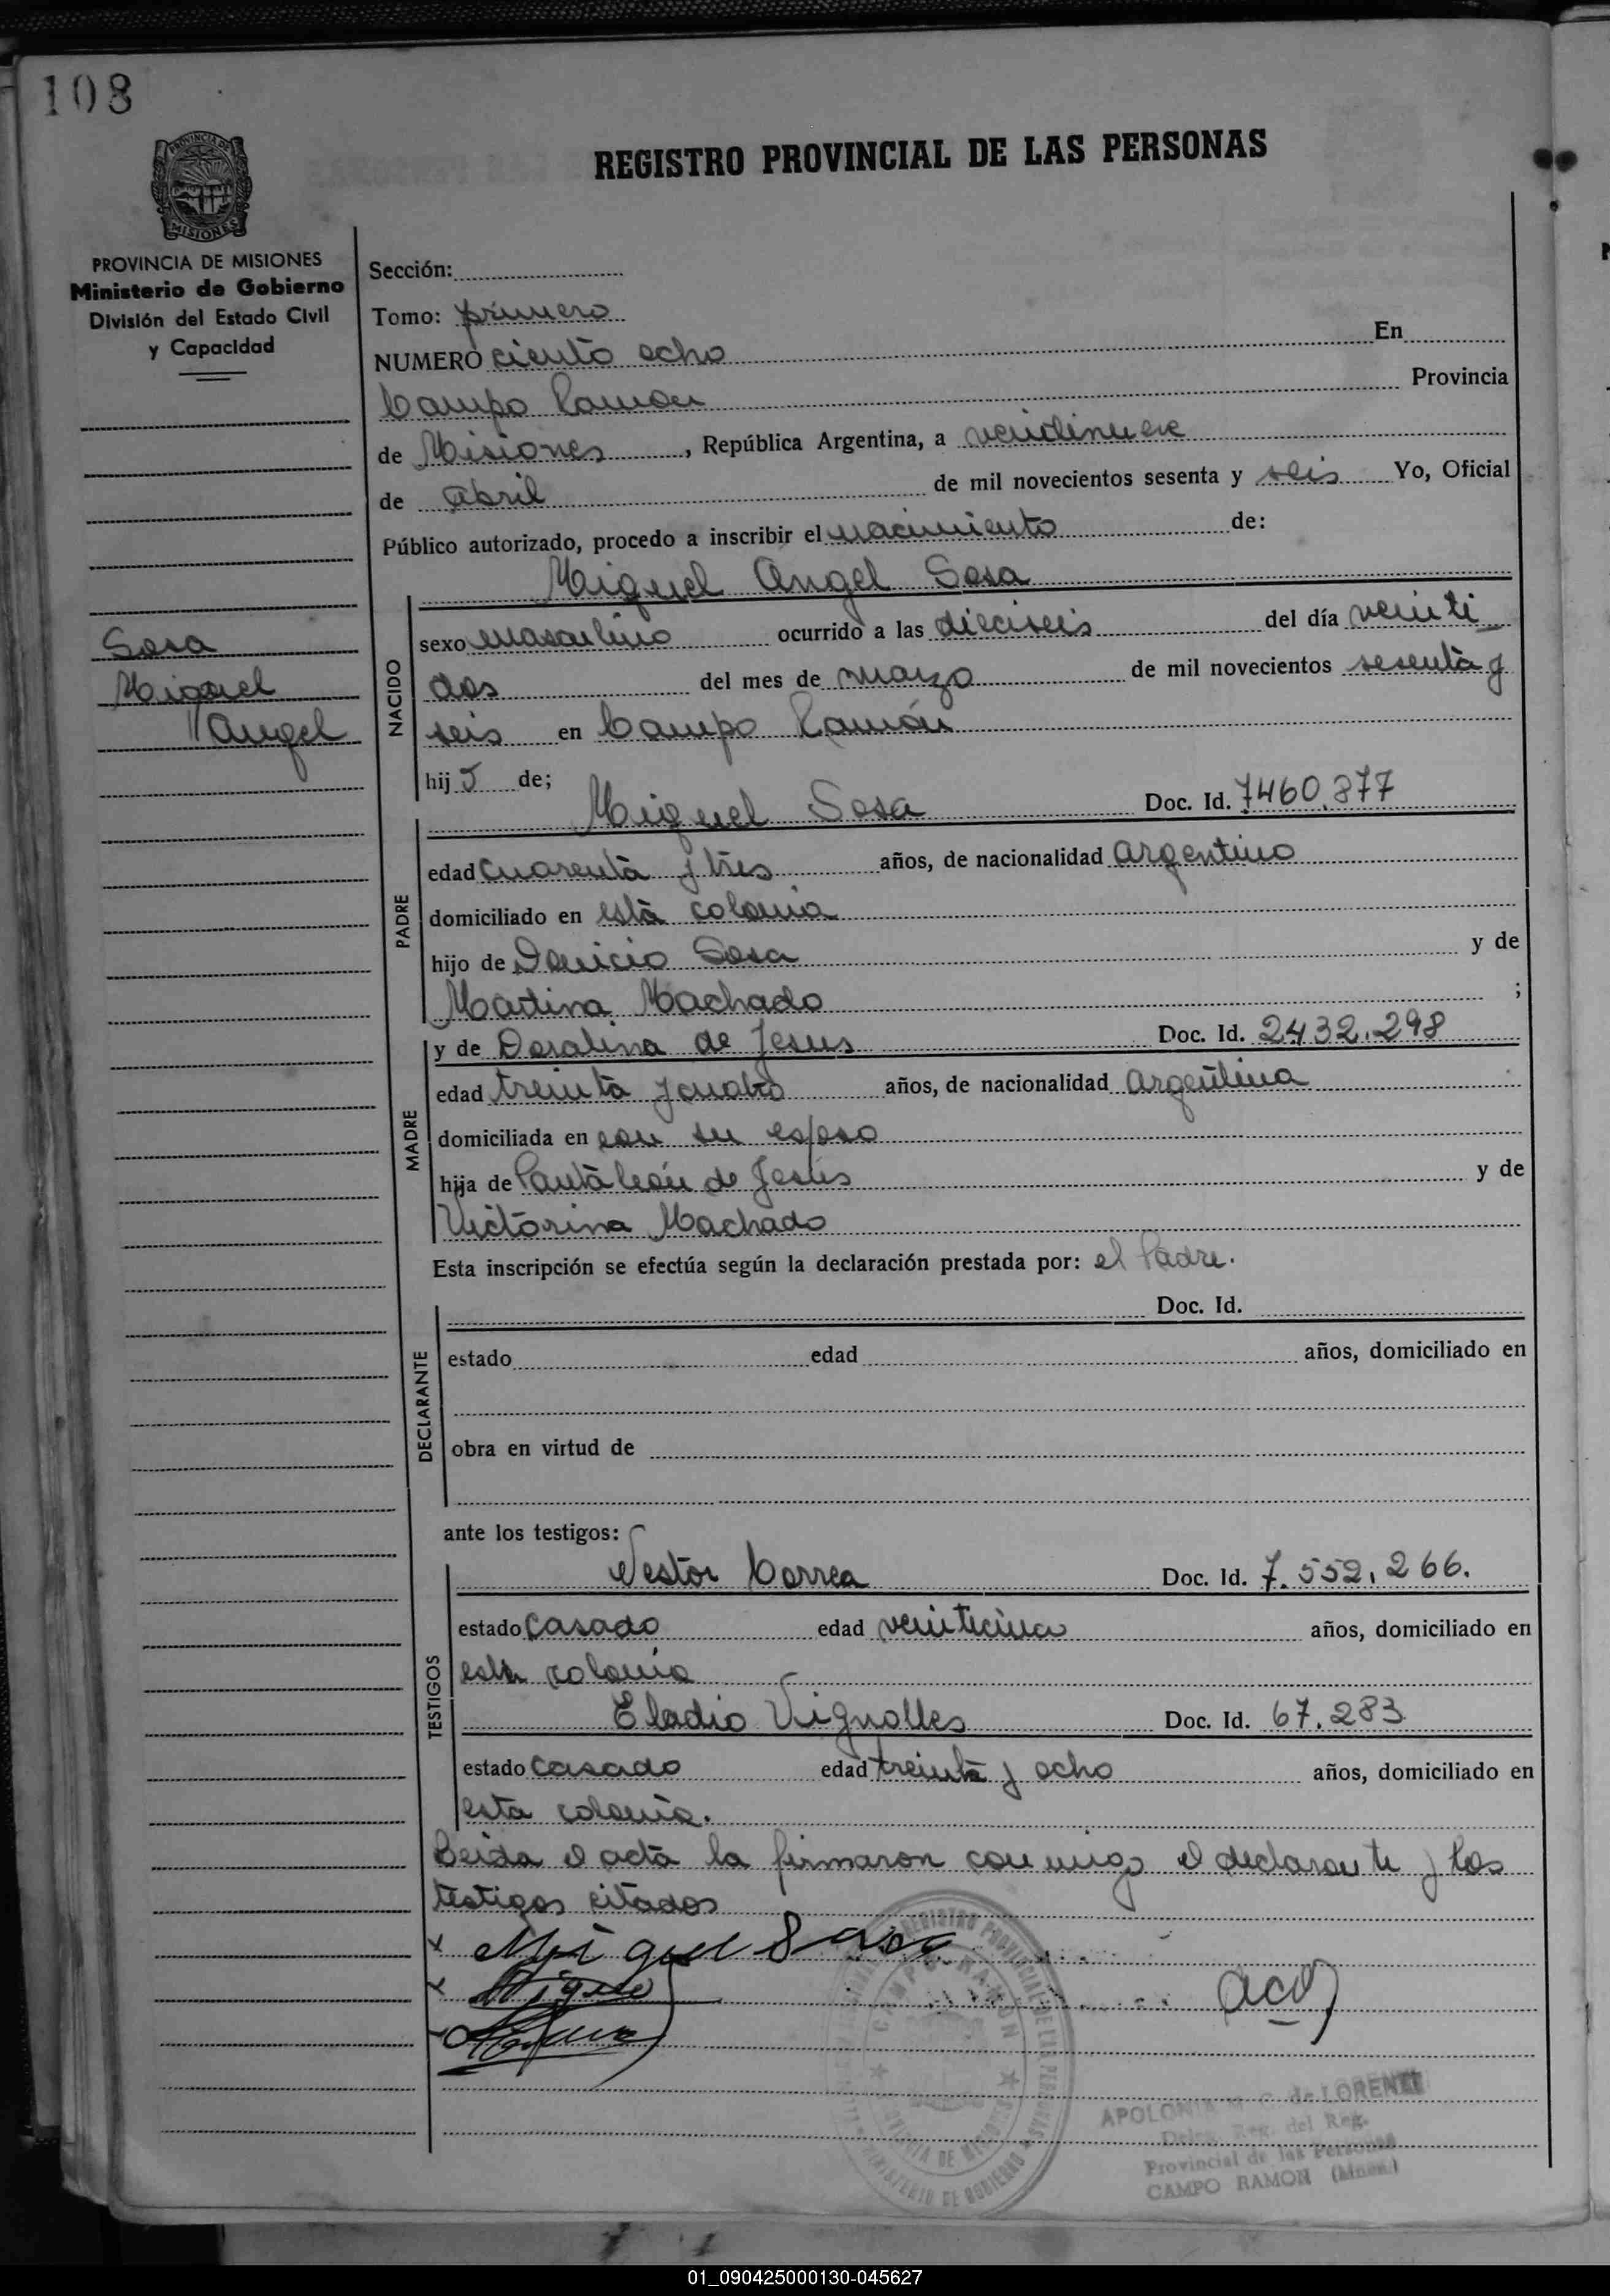 108
REGISTRO PROVINCIAL DE LAS PERSONAS
PROVINCIA DE MISIONES
Ministerio de Gobierno
División del Estado Civil
y Capacidad
Sosa
Miguel
Angel
Sección:
Tomo: primero
NUMERO ciento ocho En
Campo Ramón Provincia
de Misiones, República Argentina, a veintinueve
de abril de mil novecientos sesenta y seis Yo, Oficial
Público autorizado, procedo a inscribir el nacimiento de:
Miguel Angel Sosa
NACIDO
sexo masculino ocurrido a las dieciseis del día veinti
dos del mes de marzo de mil novecientos sesenta y
seis en Campo Ramón
hijo de;
PADRE
Miguel Sosa Doc. Id. 7460.377
edad cuarenta y tres años, de nacionalidad Argentino
domiciliado en esta colonia
hijo de Sosa y de
Martina Machado ;
MADRE
y de Doralina de Jesus Doc. Id. 2432.298
edad treinta y cuatro años, de nacionalidad Argentina
domiciliada en con su esposo
hija de Pantaleón de Jesús y de
Victorina Machado
Esta inscripción se efectúa según la declaración prestada por: el Padre.
DECLARANTE
Doc. Id.
estado edad años, domiciliado en
obra en virtud de
ante los testigos:
TESTIGOS
Nestor Correa Doc. Id. 7.552.266.
estado casado edad veinticinco años, domiciliado en
esta colonia
Eladio Vignolles Doc. Id. 67.283
estado casado edad treinta y ocho años, domiciliado en
esta colonia.
Leida el acta la firmaron conmigo el declarante y los
testigos citados
x Miguel Sosa
x
REGISTRO PROVINCIAL DE LAS PERSONAS
CAMPO RAMON
MINISTERIO DE GOBIERNO
APOLONIA M. C. de LORENZ
Deleg. Reg. del Reg.
Provincial de las Personas
CAMPO RAMON (Mnes.)
01_090425000130-045627